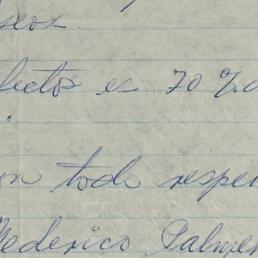 seos.
fectos es 70 %
on todo respe
Federico Palme